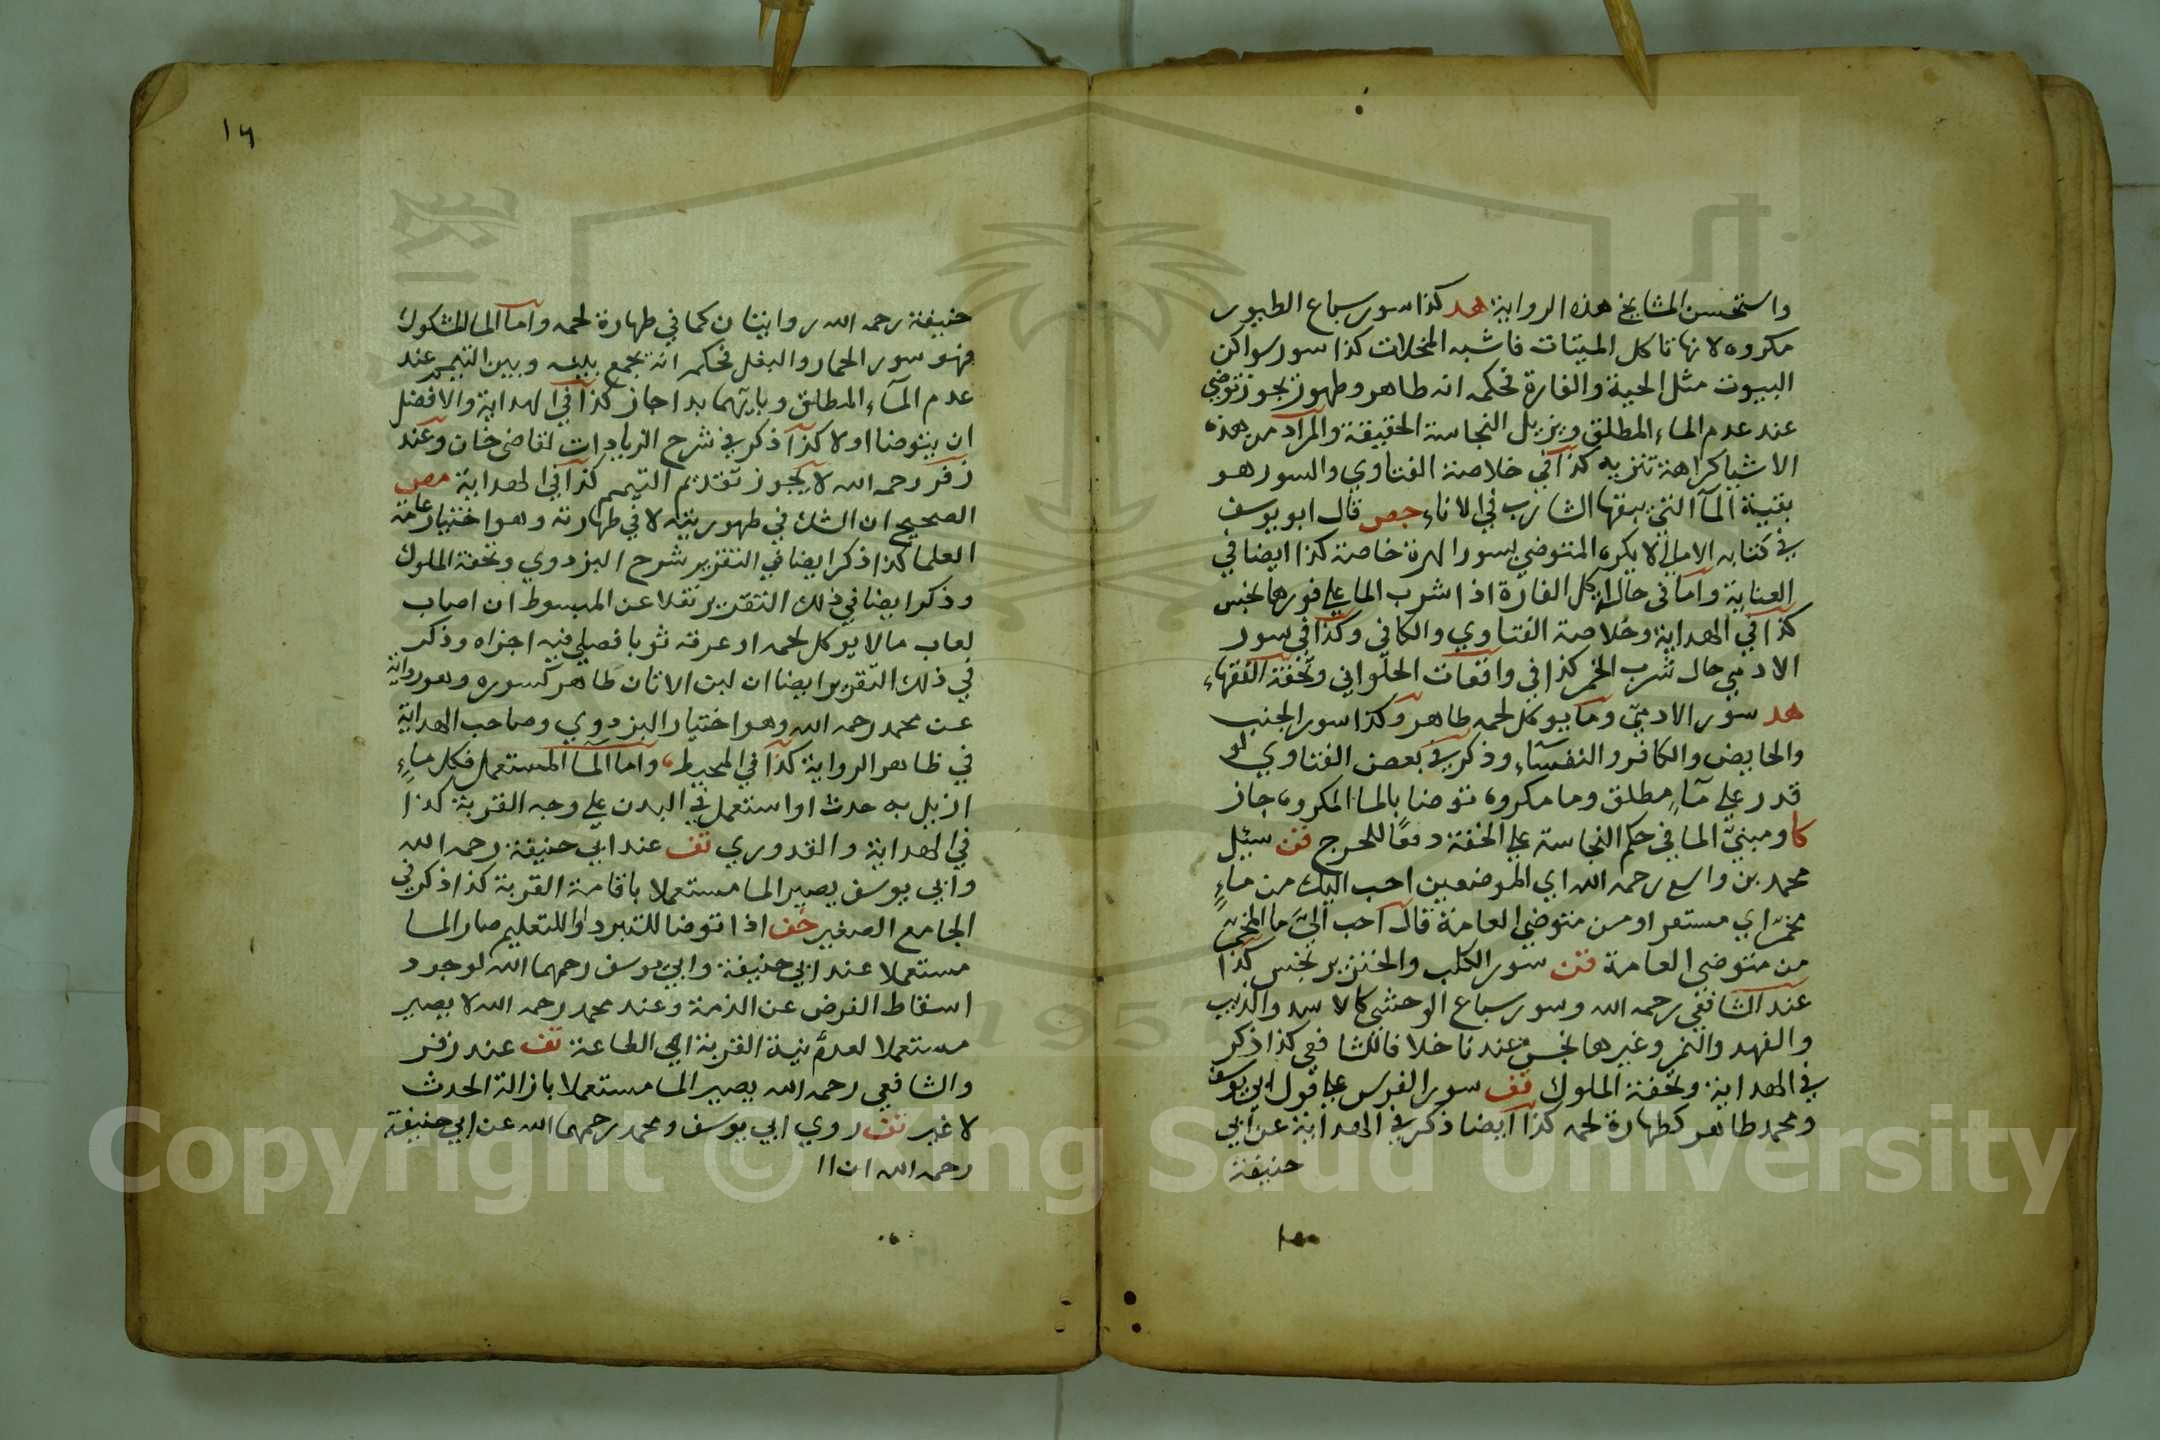 واستحسن المشايخ هذه الرواية هد كذا سور سباع الطيور
مكروه لانها تاكل الميتات فاشبه المخلات كذا سور سواكن
البيوت مثل الحية والفارة فحكمه انه طاهر وطهور يجوز توضي
عند عدم الماء المطلق ويزيل النجاسة الحقيقة والمراد من هذه
الاشيا كراهة تنزيه كذا في خلاصة الفتاوي والسور هو
بقية الما التي يبقها الشارب في الاناء جص قال ابو يوسف
في كتابه الامالي لا يكره المتوضي بسور الهرة خاصة كذا ايضا في
العناية واما في حال اكل الفارة اذا شرب الما علي فورها نجس
كذا في الهداية وخلاصة الفتاوي والكافي وكذا في سور
الادمي حال شرب الخمر كذا في واقعات الحلواني وتحفة الفقهاء
هد سور الادمي وما يوكل لحمه طاهر وكذا سور الجنب
والحايض والكافر والنفساء وذكر في بعض الفتاوي لو
قدر علي ماء مطلق وما مكروه توضا بالما المكروه جاز
كا ومبني الما في حكم النجاسة علي الخفة دفعا للحرج فتن سئيل
محمد بن واسع رحمه الله اي الموضعين احب اليك من ماء
مخمر اي مستعر او من متوضي العامة قال احب الي ما المخمر
من متوضي العامة فتن سور الكلب والخنزير نجس كذا
عند الشافعي رحمه الله وسور سباع الوحشي كالاسد والذيب
والفهد والنمر وغيرها نجس عندنا خلافا للشافعي كذا ذكر
في الهداية وتحفة الملوك قف سور الفرس علي قول ابي يوسف
ومحمد طاهر كطهارة لحمه كذا ايضا ذكر في الهداية عن ابي
حنيفة
١٦
حنيفة رحمه الله روايتان كما في طهارة لحمه واما الما المشكوك
فهو سور الحمار والبغل فحكمه انه يجمع بينه وبين التيمم عند
عدم الماء المطلق وبايهما بدا جاز كذا في الهداية والافضل
ان يتوضا اولا كذا ذكر في شرح الزيادات لقاضي خان وعند
زفر رحمه الله لا يجوز تقديم التيمم كذا في الهداية مص
الصحيح ان الشك في طهوريته لا في طهارته وهو اختيار عامة
العلما كذا ذكر ايضا في التقرير شرح البزدوي وتحفة الملوك
وذكر ايضا في ذلك التقرير نقلا عن المبسوط ان اصاب
لعاب مالا يوكل لحمه او عرقه ثوبا فصلي فيه اجزاه وذكر
في ذلك التقرير ايضا ان لبن الاتان طاهر كسوره وهو رواية
عن محمد رحمه الله وهو اختيار البزدوي وصاحب الهداية
في ظاهر الرواية كذا في المحيط واما الما المستعمل فكل ماء
ازيل به حدث او استعمل في البدن علي وجه القربة كذا
في الهداية والقدوري تف عند ابي حنيفة رحمه الله
وابي يوسف يصير الما مستعملا باقامة القربة كذا ذكر في
الجامع الصغير خف اذا توضا للتبرد او للتعليم صار الما
مستعملا عند ابي حنيفة وابي يوسف رحمهما الله لوجود
اسقاط الفرض عن الذمة وعند محمد رحمه الله لا يصير
مستعملا لعدم نية القربة اي الطاعة تف عند زفر
والشافعي رحمه الله يصير الما مستعملا بازالة الحدث
لا غير تف روي ابي يوسف ومحمد رحمهما الله عن ابي حنيفة
رحمه الله ان اا
Copyright © King Saud University
1957